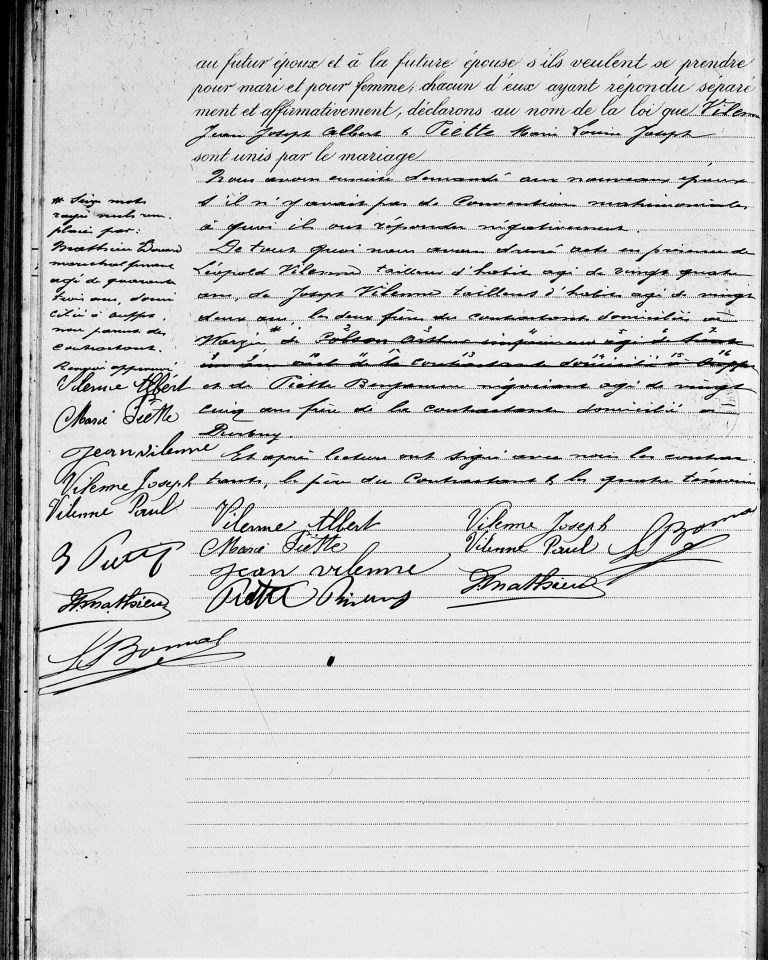 au futur époux et à la future épouse s'ils veulent se prendre
pour mari et pour femme; chacun d'eux ayant répondu séparé
ment et affirmativement, déclarons au nom de la loi que Vilenne
Jean Joseph Albert & Piette Marie Louise Joseph
sont unis par le mariage
Nous avons ensuite demandé aux nouveaux époux
s'il n'y avait pas de Convention matrimoniale
à quoi ils ont répondu négativement.
De tout quoi nous avons dressé acte en présence de
Léopold Vilenne tailleur d'habit agé de vingt quatre
ans, de Joseph Vilenne tailleur d'habits agé de vingt
deux ans, les deux frère du contractant domiciliés à
# de
et de Piette Benjamin négociant agé de vingt
cinq ans frère de la contractante domicilié à
Durbuy.
Et après lecture ont signé avec nous les contrac
tants, le père du Contractant & les quatre témoins
# Seize mots
rayés nuls rem
placés par:
Mathieu
maréchal ferrant
agé de quarante
trois ans, domi
cilié à
non parent des
contractants.
Vilenne Albert
Marie Piette
Jean Vilenne
Vilenne Joseph
Vilenne Paul
B Piette
Mathieu
Bomal
Vilenne Albert Vilenne Joseph Bomal
Marie Piette Vilenne Paul
Jean Vilenne Mathieu
Piette